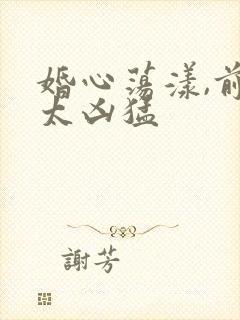 婚心蕩漾,前
太凶猛
謝芳